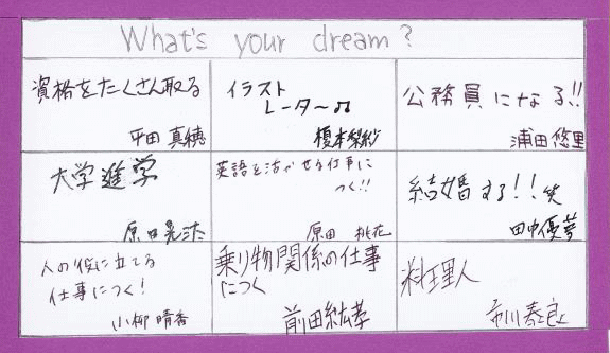 What's your dream?
資格をたくさん取る
平田 真穂
イラスト
レーター♫
榎本梨紗
公務員になる!!
浦田悠里
大学進学
原田
英語を活かせる仕事に
つく!!
原田 桃花
結婚する!!笑
田中優夢
人の役に立てる
仕事につく!
小柳 晴香
乗り物関係の仕事
につく
前田紘孝
料理人
市川泰良